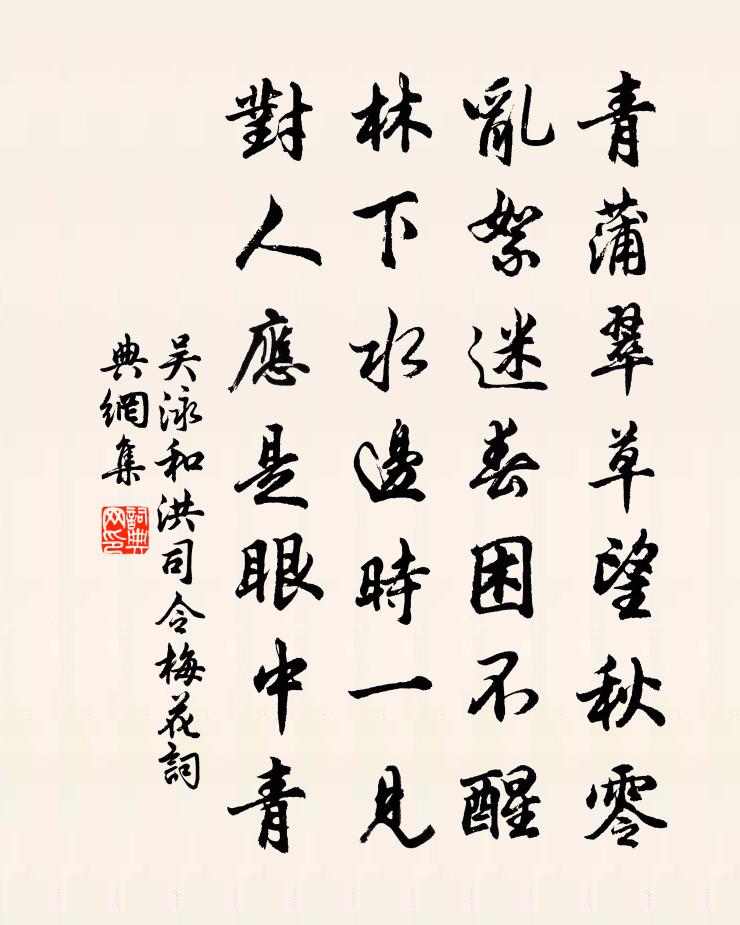 青蒲翠草望秋零
亂絮迷春困不醒
林下水邊時一見
對人應是眼中青
吴泳和洪司令梅花詞
典網集
詞典
网印